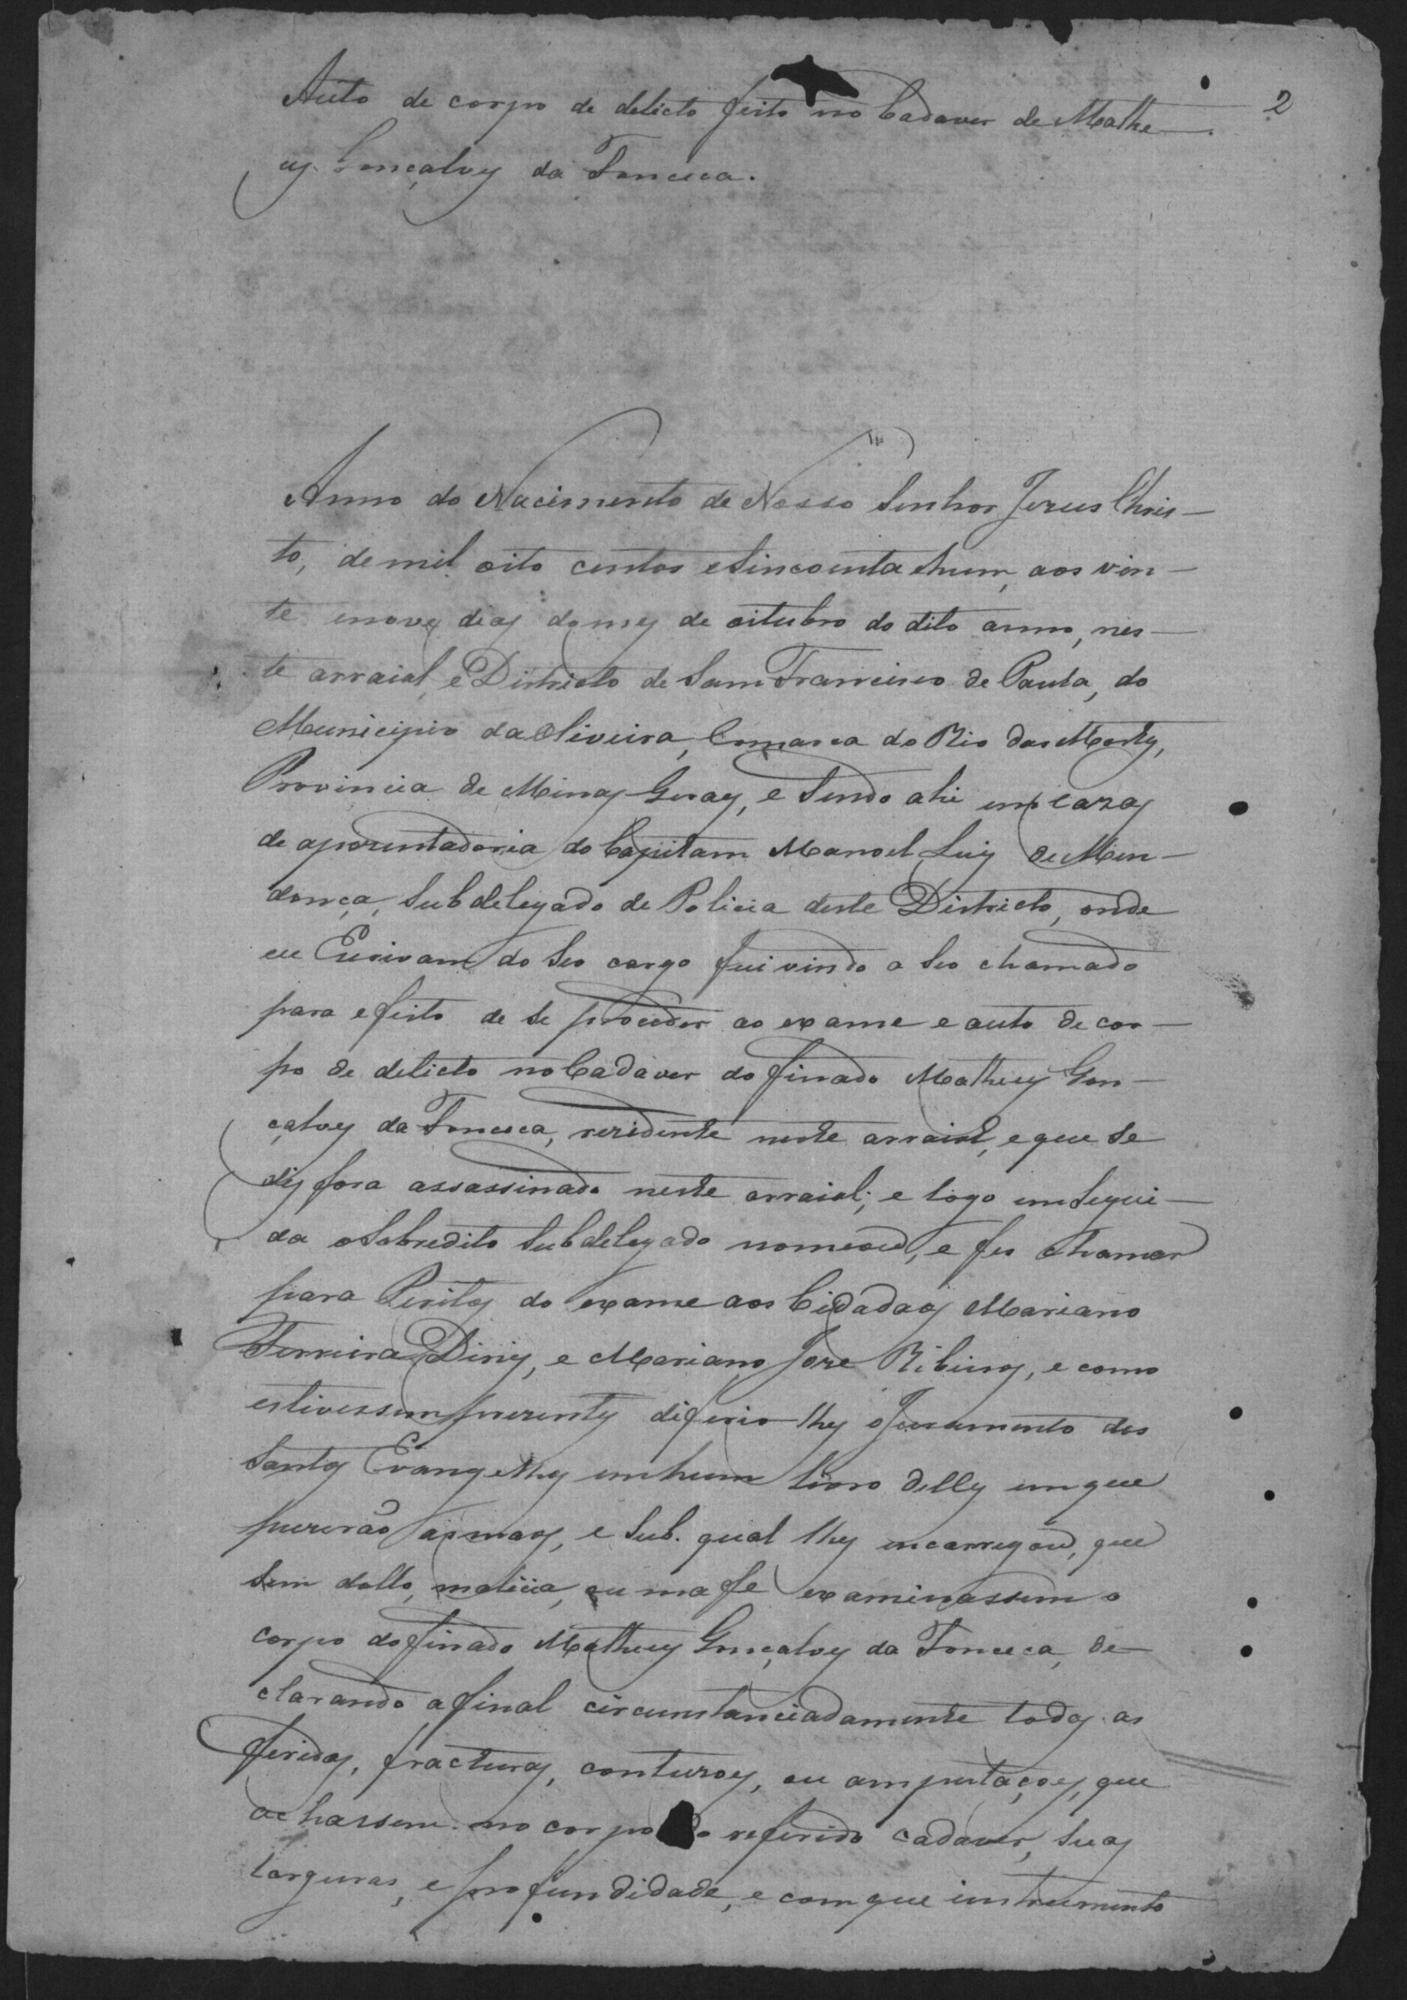 2
Auto de corpo de delicto feito no Cadaver de Mathe
us Gonçalves da Fonceca.
Anno do Nacimento de Nosso Senhor Jezus Chris-
to, de mil oito centos e sincoenta e hum, aos vin-
te e nove dias do mes de oitubro do dito anno, nes-
te arraial, e Districto de Sam Francisco de Paula, do
Municipio da Oliveira, Comarca do Rio das Mortes,
Provincia de Minas Geraes, e sendo ahi em cazas
de apozentadoria do Capitam Manoel Luis de Men-
donça, Subdelegado de Policia deste Districto, onde
eu Escrivam do seo cargo fui vindo a seo chamado
para efeito de se proceder ao exame e auto de cor-
po de delicto no Cadaver do finado Matheus Gon-
çalves da Fonceca, rezidente neste arraial, e que se
dis fora assassinado neste arraial; e logo em segui-
da o Sobredito Subdelegado nomeou, e fes chamar
para Peritos do exame aos Cidadaos Mariano
Ferreira Diniz, e Mariano Joze Ribeiros, e como
estivessem prezentes diferio-lhes o Juramento dos
Santos Evangelhos em hum livro delles em que
puzerão as maos, e sub. qual lhes encarregou, que
sem dollo, malicia, ou ma fe examinassem o
corpo do finado Matheus Gonçalves da Fonceca, de-
clarando afinal circumstanciadamente todas as
feridas, fracturas, contuzoes, ou amputaçoes, que
achassem no corpo do referido cadaver, suas
larguras, e profundidade, e com que instrumento